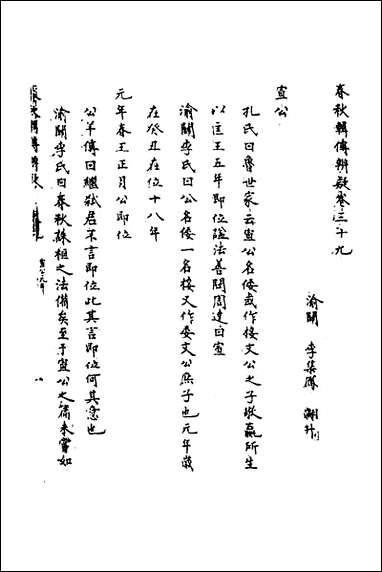 春秋輯傳辨疑卷三十九
渝關 李集鳳 翽升
宣公
孔氏曰魯世家云宣公名倭或作接文公之子敬嬴所生
以匡王五年即位諡法善問周達曰宣
渝關李氏曰公名倭一名接又作委文公庶子也元年歲
在癸丑在位十八年
元年春王正月公即位
公羊傳曰繼弒君不言即位此其言即位何其意也
渝關李氏曰春秋誅桓之法備矣至于宣公之篇未嘗如
春秋輯傳辨疑
宣公元年
一